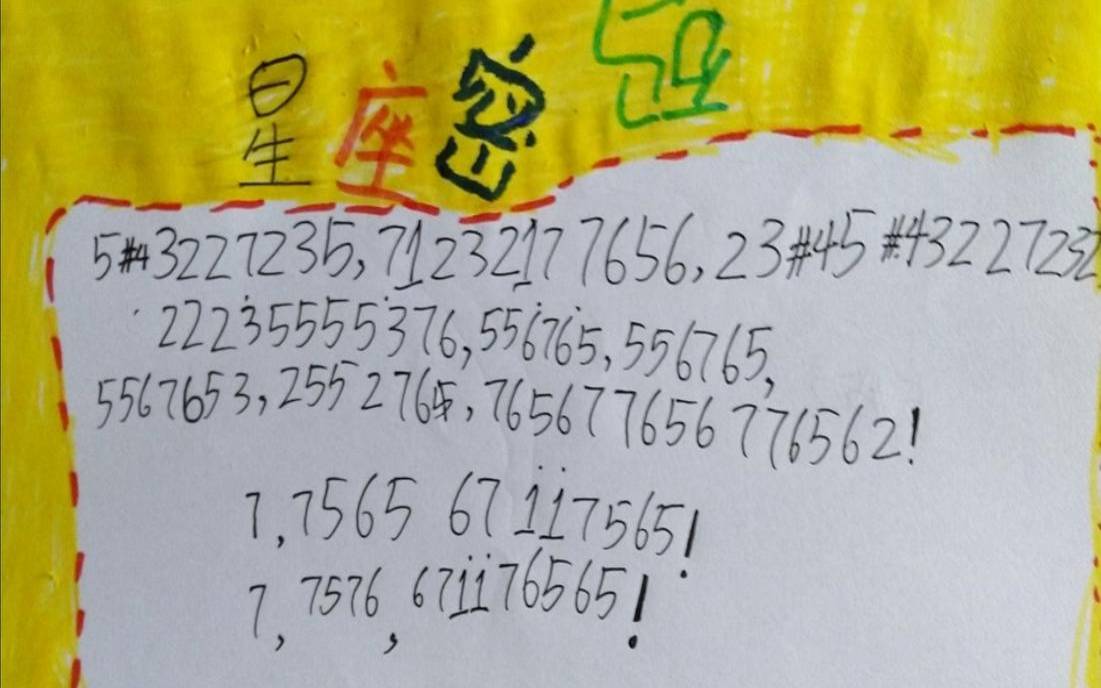 星座密码
5#43227235,7123217 7656,23#45 #43227232
2223̇55553̇76,5567̇65̇,556765,
5567653,2552765,765677656776562!
7,7565 671̇1̇7565!
7,7576,671̇1̇76565!